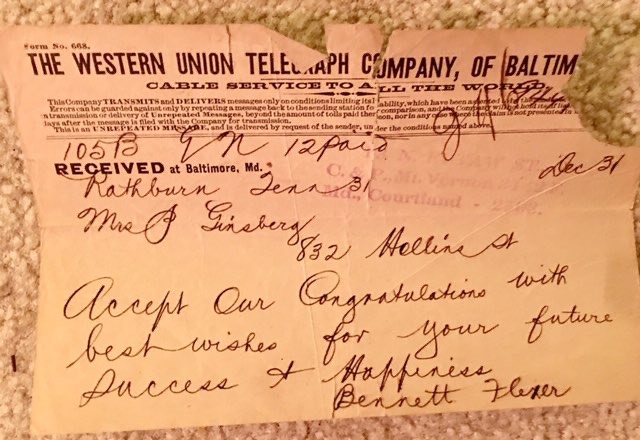 Form No. 668.
THE WESTERN UNION TELEGRAPH COMPANY, OF BALTIM
CABLE SERVICE TO ALL THE WORLD
This Company TRANSMITS and DELIVERS messages only on conditions limiting its liability, which have been assented to
Errors can be guarded against only by repeating a message back to the sending station
a transmission or delivery of Unrepeated Messages, beyond the amount of tolls paid
days after the message is filed with the Company for transmission.
This is an UNREPEATED MESSAGE, and is delivered by request of the sender, under the conditions named above.
105B GN 12 Paid
RECEIVED at Baltimore, Md. Dec 31
C. & P., Mt. Vernon
Md., Courtland
Rathburn Tenn 31
Mrs B Ginsberg
832 Hollins St
Accept Our Congratulations with
best wishes for your future
Success & Happiness
Bennett Flexer